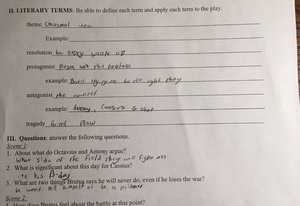 II. LITERARY TERMS: Be able to define each term and apply each term to the play.
theme universal idea
Example:
resolution how story wraps up
protagonist person with the problem
example: Brutus trying to do the right thing
antagonist the
example: Antony,
tragedy
III. Questions: answer the following questions.
Scene 1:
1. About what do Octavius and Antony argue?
What side of the field they will fight on
2. What is significant about this day for Cassius?
its his B-day
3. What are two things Brutus says he will never do, even if he loses the war?
he wont kill himself or be a prisoner
Scene 2:
4. How does Brutus feel about the battle at this point?